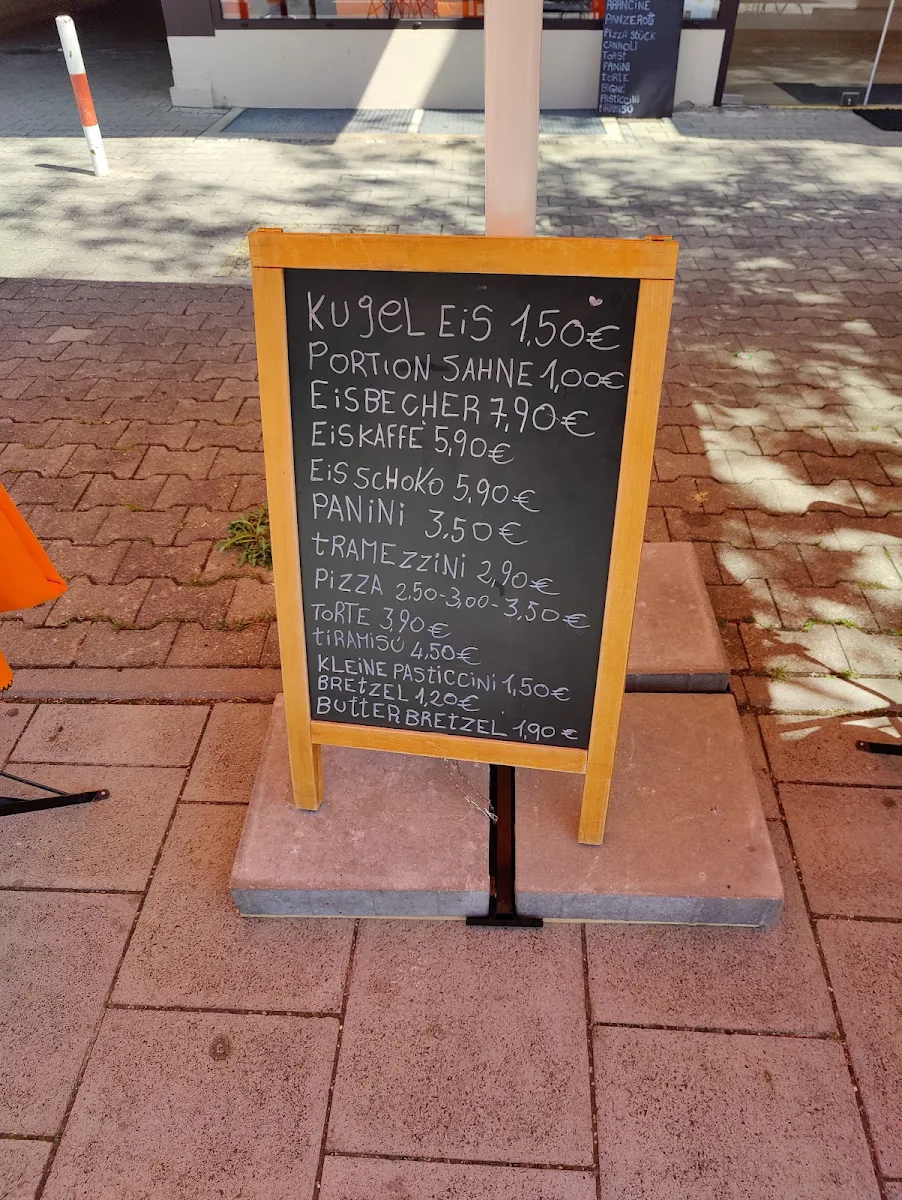 ARANCINE
PANZEROTTI
PIZZA STÜCK
CANNOLI
TOAST
PANINI
TORTE
BIGNÉ
PASTICCINI
TIRAMISÚ
KUgeL EiS 1,50€
PORTION SAHNE 1,00€
EiSBECHER 7,90€
EiSKAFFÈ 5,90€
EiS SCHOKO 5,90€
PANiNi 3,50€
tRAMEZZiNi 2,90€
PiZZA 2,50-3,00-3,50€
TORTE 3,90€
tiRAMiSÚ 4,50€
KLEiNE PASTiCCiNi 1,50€
BREtZEL 1,20€
BUttERBREtZEL 1,90€